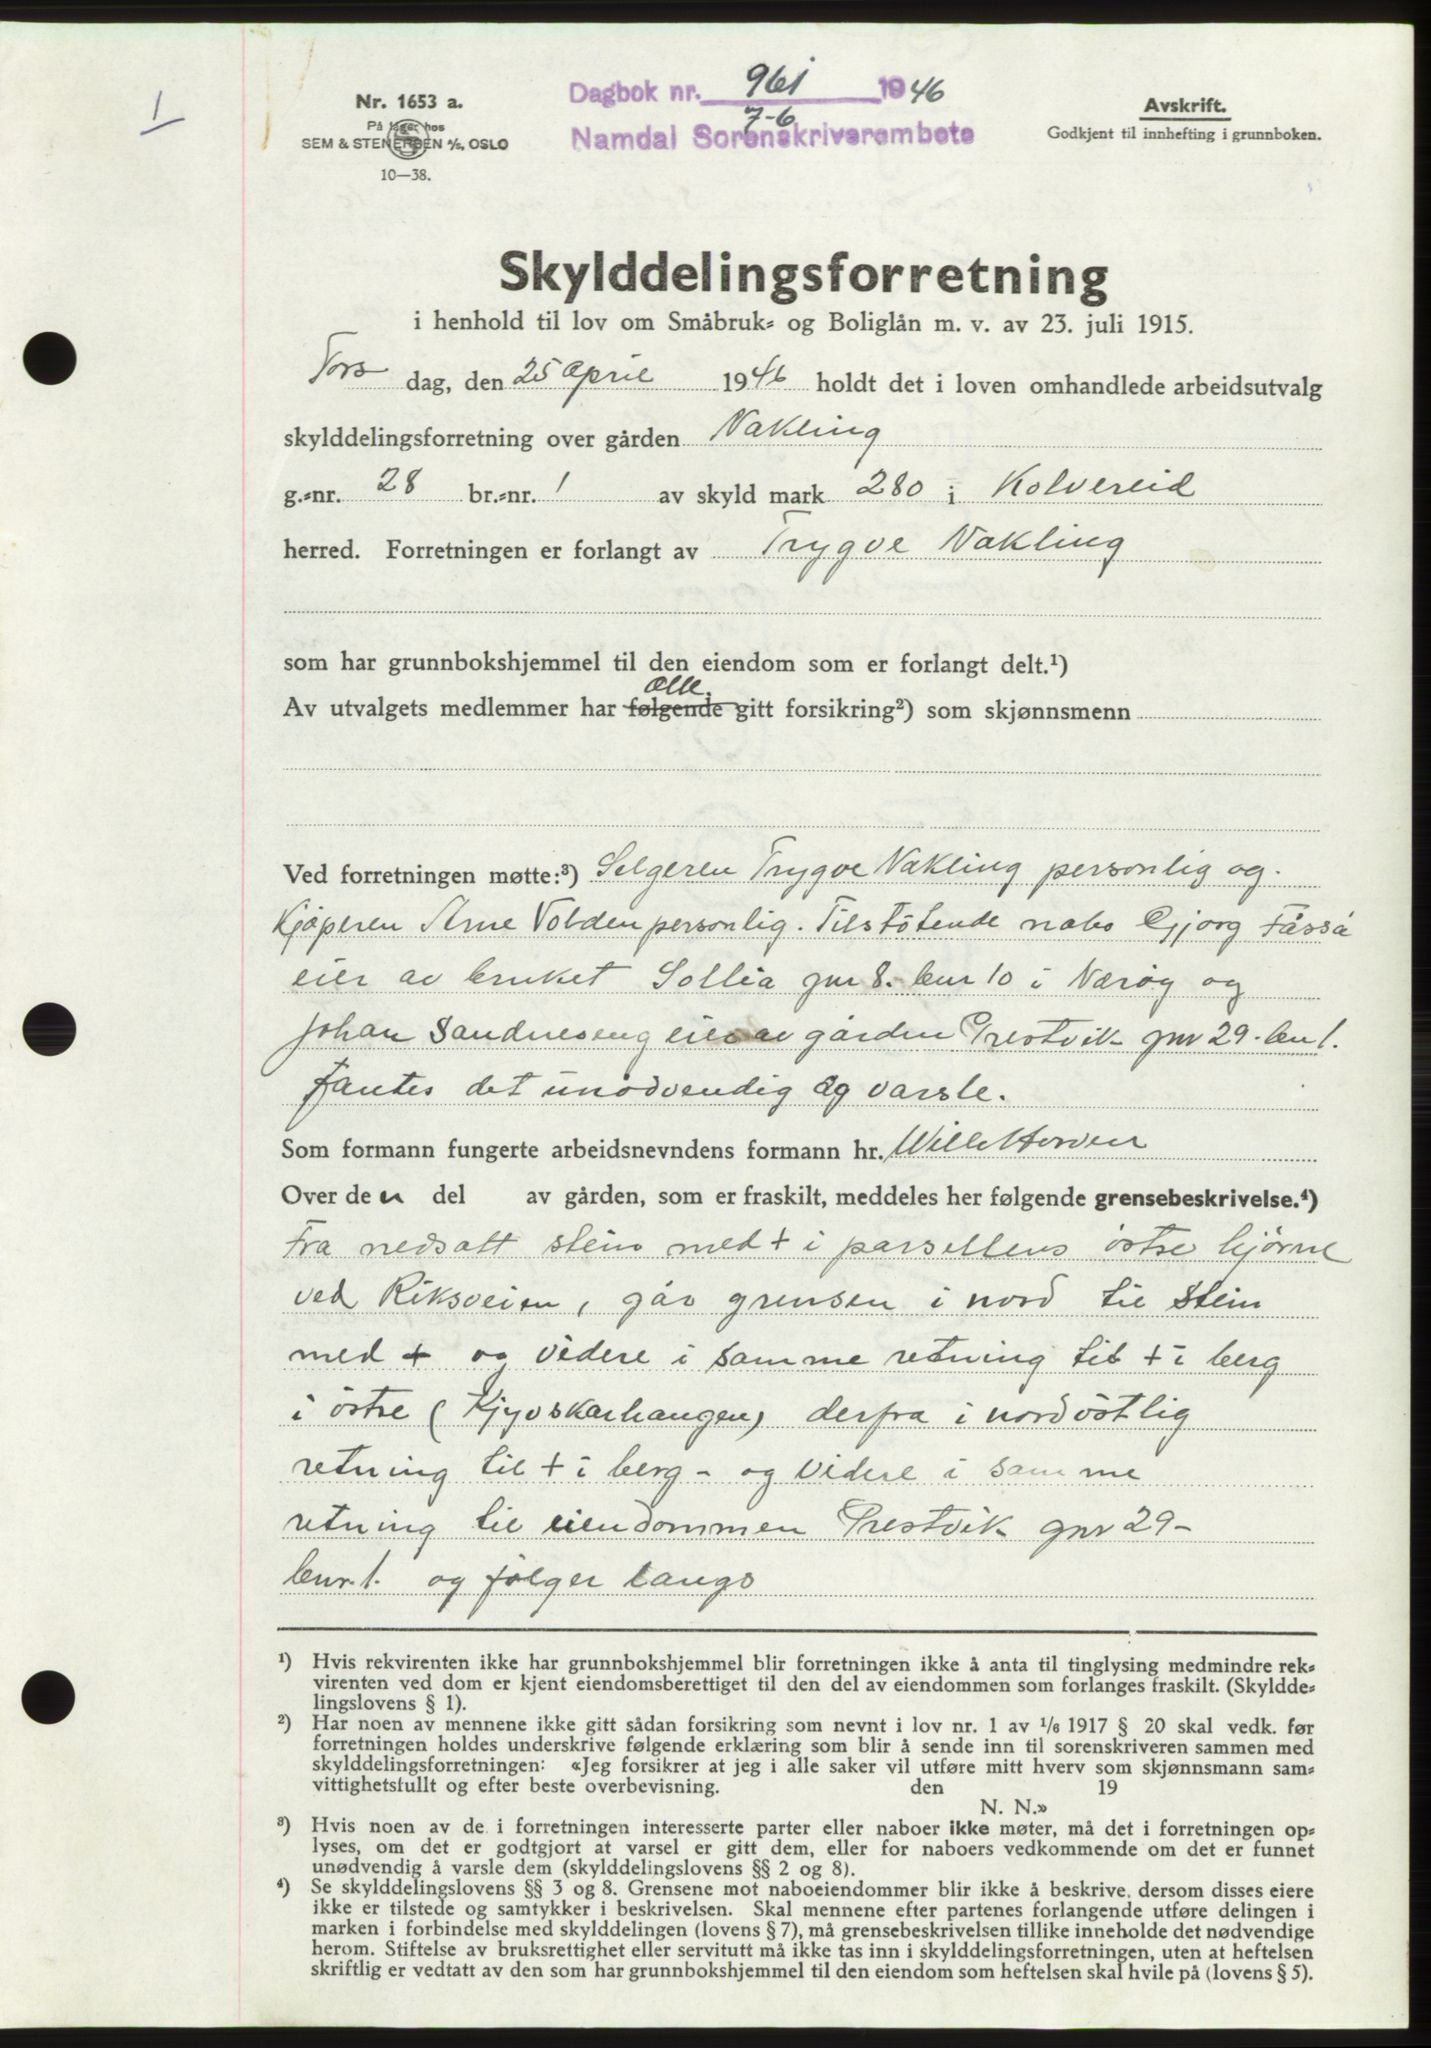 1
Nr. 1653 a.
På lager hos
SEM & STENERSEN A/S, OSLO
10—38.
Dagbok nr. 961 1946
7-6
Namdal Sorenskriverembete
Avskrift.
Godkjent til innhefting i grunnboken.
Skylddelingsforretning
i henhold til lov om Småbruk- og Boliglån m. v. av 23. juli 1915.
Tors dag, den 25 april 1946 holdt det i loven omhandlede arbeidsutvalg
skylddelingsforretning over gården Nakling
g.-nr. 28 br.-nr. 1 av skyld mark 280 i Kolvereid
herred. Forretningen er forlangt av Trygve Nakling
som har grunnbokshjemmel til den eiendom som er forlangt delt.¹)
alle.
Av utvalgets medlemmer har følgende gitt forsikring²) som skjønnsmenn
Ved forretningen møtte:³) Selgeren Trygve Nakling personlig og.
Kjøperen Arne Volden personlig. Tilstøtende nabo Gjorg Fåsså
eier av bruket Sollia gnr 8. bnr 10 i Nærøy og
Johan Sandneseng eier av gården Prestvik gnr 29. bnr 1.
fantes det unødvendig og varsle.
Som formann fungerte arbeidsnevndens formann hr.
Over den del av gården, som er fraskilt, meddeles her følgende grensebeskrivelse.⁴)
Fra nedsatt stein med + i parsellens østre hjørne
ved Riksveien, går grensen i nord til stein
med + og videre i samme retning til + i berg
i østre (Kjyvskarhaugen) derfra i nordøstlig
retning til + i berg - og videre i samme
retning til eiendommen Prestvik gnr 29-
bnr. 1. og følger langs
¹) Hvis rekvirenten ikke har grunnbokshjemmel blir forretningen ikke å anta til tinglysing medmindre rek-
virenten ved dom er kjent eiendomsberettiget til den del av eiendommen som forlanges fraskilt. (Skyldde-
lingslovens § 1).
²) Har noen av mennene ikke gitt sådan forsikring som nevnt i lov nr. 1 av 1/6 1917 § 20 skal vedk. før
forretningen holdes underskrive følgende erklæring som blir å sende inn til sorenskriveren sammen med
skylddelingsforretningen: «Jeg forsikrer at jeg i alle saker vil utføre mitt hverv som skjønnsmann sam-
vittighetsfullt og efter beste overbevisning. den 19
N. N.»
³) Hvis noen av de i forretningen interesserte parter eller naboer ikke møter, må det i forretningen op-
lyses, om det er godtgjort at varsel er gitt dem, eller for naboers vedkommende om det er funnet
unødvendig å varsle dem (skylddelingslovens §§ 2 og 8).
⁴) Se skylddelingslovens §§ 3 og 8. Grensene mot naboeiendommer blir ikke å beskrive, dersom disses eiere
ikke er tilstede og samtykker i beskrivelsen. Skal mennene efter partenes forlangende utføre delingen i
marken i forbindelse med skylddelingen (lovens § 7), må grensebeskrivelsen tillike inneholde det nødvendige
herom. Stiftelse av bruksrettighet eller servitutt må ikke tas inn i skylddelingsforretningen, uten at heftelsen
skriftlig er vedtatt av den som har grunnbokshjemmel til den eiendom som heftelsen skal hvile på (lovens § 5).